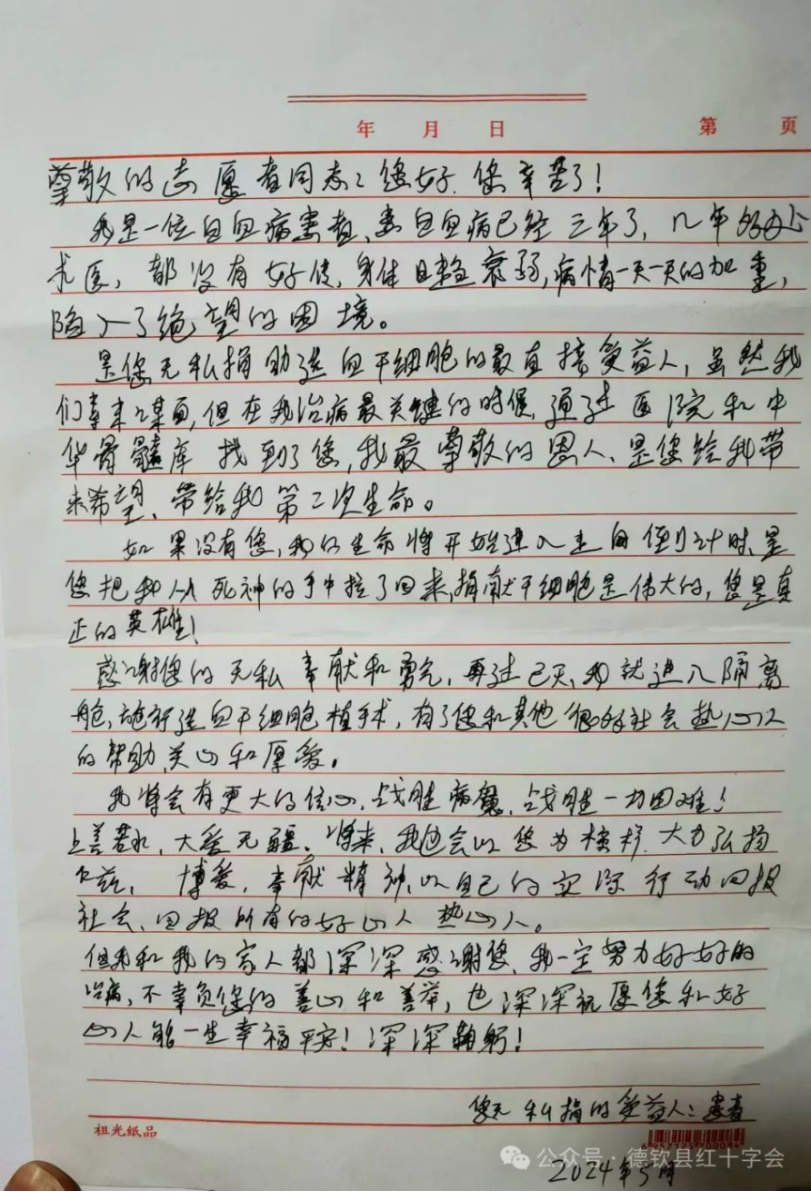 年 月 日 第 页
尊敬的志愿者同志：您好、您辛苦了！
我是一位白血病患者，患白血病已经三年了，几年的
求医，都没有好传，身体日趋衰弱，病情一天一天的加重，
陷入了绝望的困境。
是您无私捐助造血干细胞的最直接受益人，虽然我
们素未谋面，但在我治病最关键的时候，通过医院和中
华骨髓库找到了您，我最尊敬的恩人、是您给我带
来希望、带给我第二次生命。
如果没有您，我的生命将开始进入生命倒计时，是
您把我从死神的手中拉了回来，捐献干细胞是伟大的，您是真
正的英雄！
感谢您的无私奉献和勇气，再过已天，我就进入隔离
舱，施行造血干细胞植手术，有了您和其他很多好社会热心人
的帮助、关心和厚爱。
我将会有更大的信心，战胜病魔，战胜一切困难！
上善若水，大爱无疆。将来，我也会以您为榜样，大力弘扬
仁慈、博爱，奉献精神，以自己的实际行动回报
社会、回报所有的好心人热心人。
但我和我的家人都深深感谢您，我一定努力好好的
治病，不辜负您的善心和善举，也深深祝愿您和好
心人能一生幸福平安！深深鞠躬！
您无私捐的受益人：患者
祖光纸品
公众号·德钦县红十字会
2024年5月